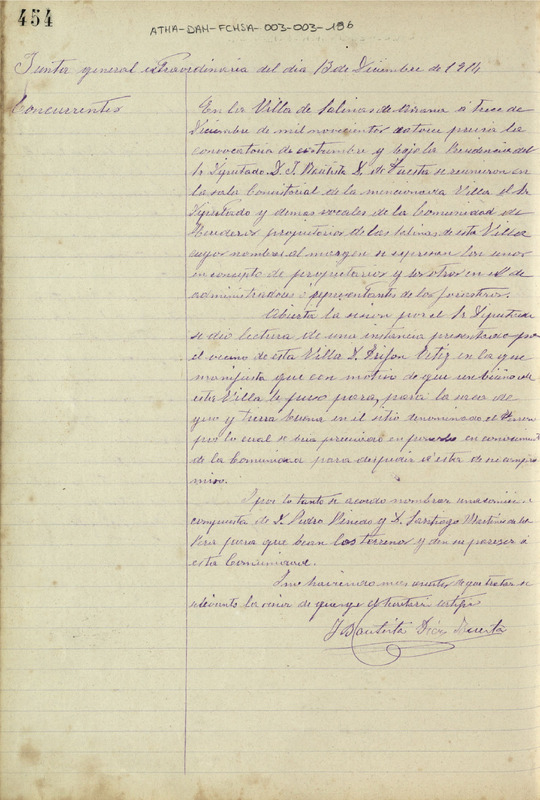 454
ATHA-DAH-FCHSA-003-003-196
Junta general extraordinaria del dia 13 de Diciembre de 1914
Concurrentes
En la Villa de Salinas de Añana a trece de
Diciembre de mil novecientos catorce previa la
convocatoria de costumbre y bajo la Presidencia del
Sr Diputado D. J. Bautista D. de Tuesta se reunieron en
la sala Consistorial de la mencionada Villa el Sr
Diputado y demas vocales de la Comunidad de
Herederos propietarios de las Salinas de esta Villa
cuyos nombres al margen se expresan los unos
en concepto de propietarios y los otros en el de
administradores o representantes de los forasteros.
Abierta la sesion por el Sr Diputado
se dio lectura de una instancia presentada por
el vecino de esta Villa D. en la que
manifiesta que con motivo de que un vecino de
esta Villa le puso para, para la saca de
yeso y tierra buena en el sitio denominado el
por lo cual se veia precisado en ponerlo en conocimiento
de la Comunidad para despedir a esta de su compro
miso.
Y por lo tanto se acordo nombrar una comision
compuesta de D. Pedro Pinedo y D. Santiago Martinez de la
Pera para que bean los terrenos y den su pareser a
esta Comunidad.
Y no haviendo mas asuntos de que tratar se
levanto la sesion de que yo el Secretario certifico
J Bautista Diaz Tuesta